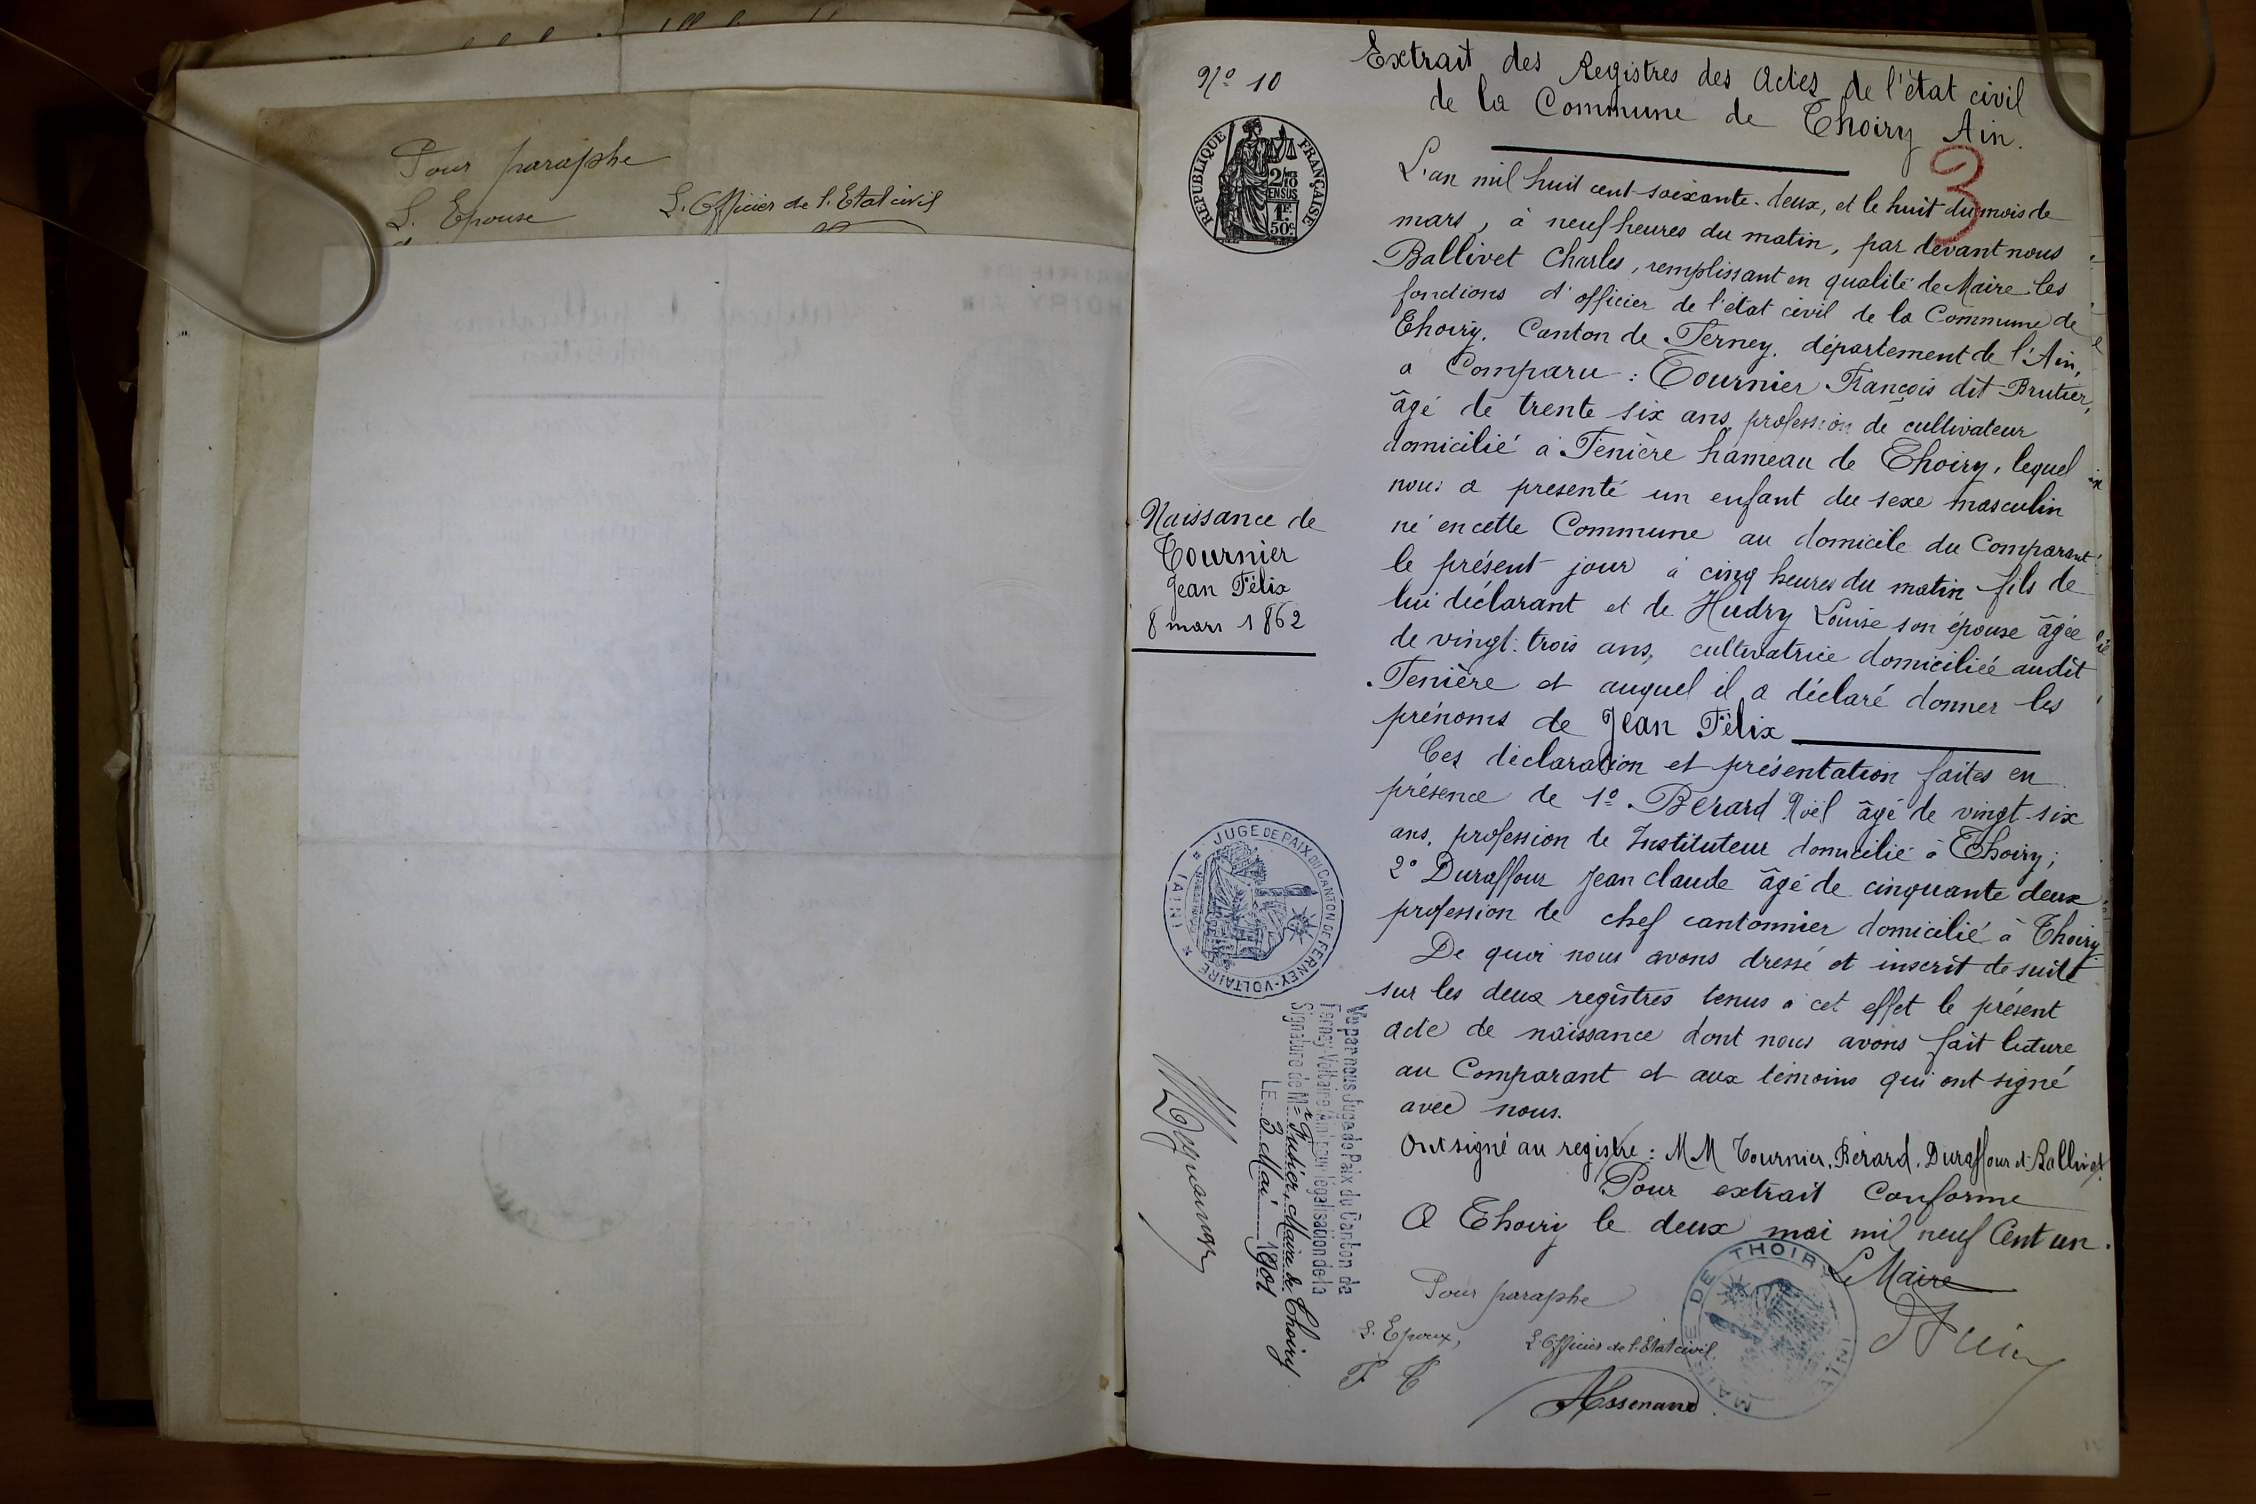 Pour paraphe
L. Epouse
L. Officier de l. Etat civil
Nº 10
Extrait des Registres des Actes de l'état civil
de la Commune de Thoiry Ain.
3
RÉPUBLIQUE FRANÇAISE
2/10
EN SUS
1F.
50c.
L'an mil huit cent soixante-deux, et le huit du mois de
mars, à neuf heures du matin, par devant nous
Ballivet Charles, remplissant en qualité de Maire les
fonctions d'officier de l'état civil de la Commune de
Thoiry, Canton de Ferney, département de l'Ain,
a Comparu : Tournier François dit Brutier,
âgé de trente six ans, profession de cultivateur
domicilié à Fenière hameau de Thoiry, lequel
nous a présenté un enfant du sexe masculin
né en cette Commune au domicile du Comparant
le présent jour à cinq heures du matin fils de
lui déclarant et de Hudry Louise son épouse âgée
de vingt-trois ans, cultivatrice domiciliée audit
Fenière et auquel il a déclaré donner les
prénoms de Jean Félix
Naissance de
Tournier
Jean Félix
8 mars 1862
Ces déclaration et présentation faites en
présence de 1º Berard Noël âgé de vingt-six
ans, profession de Instituteur domicilié à Thoiry;
2º Duraffour Jean claude âgé de cinquante deux
profession de chef cantonnier domicilié à Thoiry
De quoi nous avons dressé et inscrit de suite
sur les deux registres tenus à cet effet le présent
acte de naissance dont nous avons fait lecture
au Comparant et aux témoins qui ont signé
avec nous.
Ont signé au registre : MM Tournier, Bérard, Duraffour et Ballivet.
Pour extrait Conforme
A Thoiry le deux mai mil neuf Cent un.
Le Maire
JUGE DE PAIX DU CANTON DE FERNEY-VOLTAIRE (AIN)
Vu par nous Juge de Paix du Canton de
Ferney-Voltaire (Ain) pour légalisation de la
Signature de Mr Fusier, Maire de Thoiry
LE 3 Mai 1901
Pour paraphe
L. Epoux,
L. Officier de l. Etat civil
F T
Assenand
MAIRIE DE THOIRY